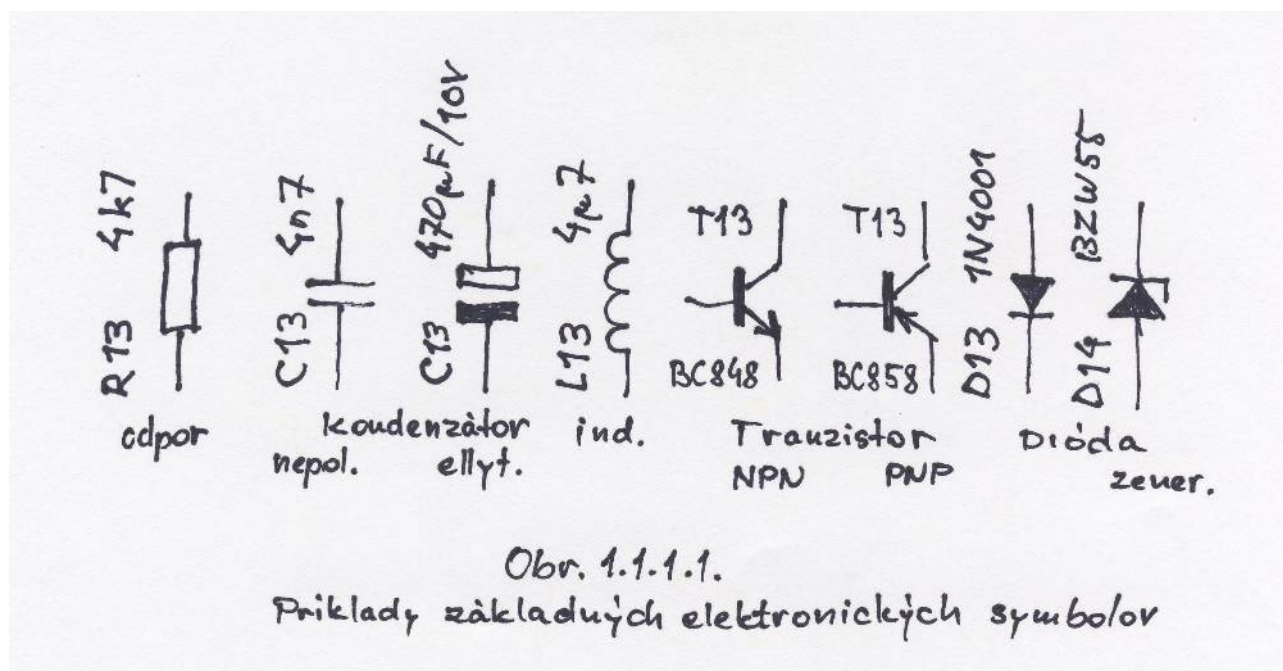 R13 4k7
C13 4n7
C13 470µF/10V
L13 4µ7
T13
BC848
T13
BC858
D13 1N4001
D14 BZW55
odpor
kondenzátor
nepol. ellyt.
ind.
Tranzistor
NPN PNP
Dióda
zener.
Obr. 1.1.1.1.
Priklady základných elektronických symbolov